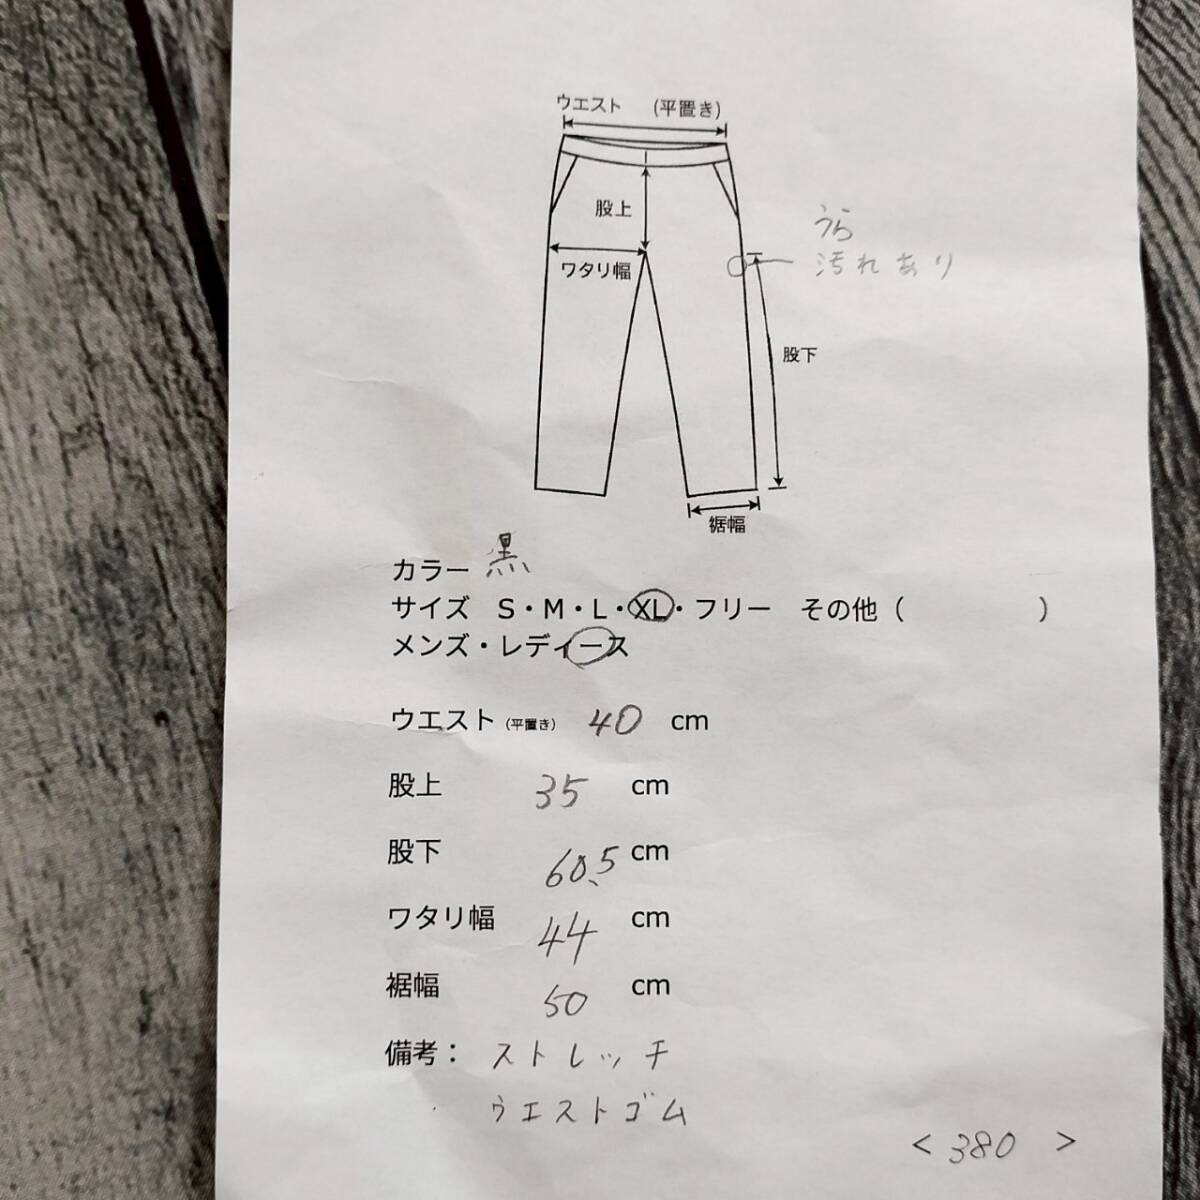 ウエスト (平置き)
股上
うら
ワタリ幅
汚れあり
股下
裾幅
カラー 黒
サイズ S・M・L・XL・フリー その他（ ）
メンズ・レディース
ウエスト（平置き） 40 cm
股上 35 cm
股下 60.5 cm
ワタリ幅 44 cm
裾幅 50 cm
備考： ストレッチ
ウエストゴム
＜ 380 ＞